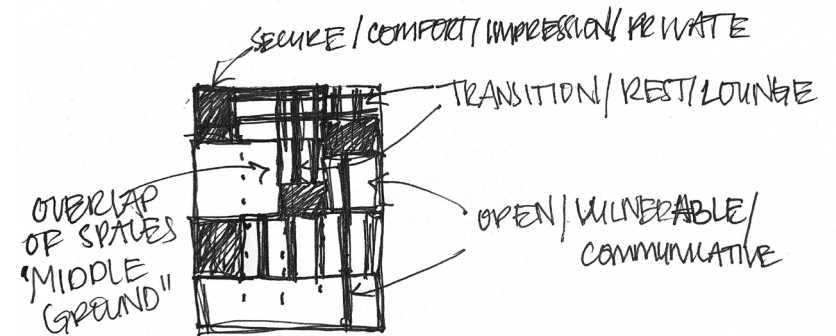 SECURE/COMFORT/IMPRESSION/PRIVATE
TRANSITION/REST/LOUNGE
OVERLAP
OF SPACES
"MIDDLE
GROUND"
OPEN/VULNERABLE/
COMMUNICATIVE